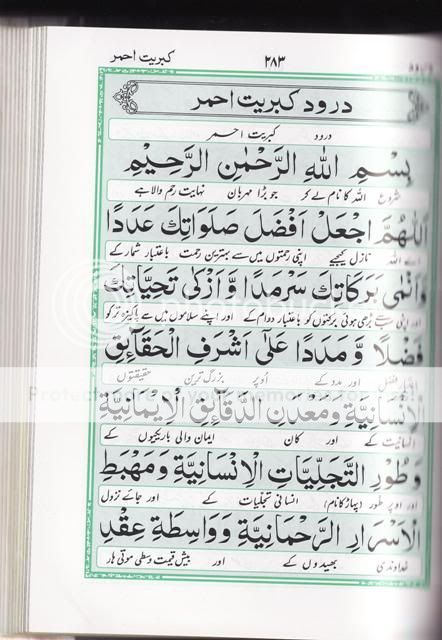 کبریت احمر
۲۸۳
درود کبریت احمر
درود کبریت احمر
بِسْمِ اللهِ الرَّحْمٰنِ الرَّحِيْمِ
شروع اللہ کا نام لے کر جو بڑا مہربان نہایت رحم والا ہے
اَللّٰهُمَّ اجْعَلْ اَفْضَلَ صَلَوَاتِكَ عَدَدًا
اے اللہ نازل کیجیے اپنی رحمتوں میں سے بہترین رحمت باعتبار شمار کے
وَاَنْمٰى بَرَكَاتِكَ سَرْمَدًا وَّ اَزْكٰى تَحِيَّاتِكَ
اور اپنی سب سے بڑھی ہوئی برکتوں کو باعتبار دوام کے اور اپنے سلاموں میں سے پاکیزہ تر کو
فَضْلًا وَّ مَدَدًا عَلٰى اَشْرَفِ الْحَقَآئِقِ
فضل اور مدد کے اُوپر بزرگ ترین حقیقتوں
الْاِنْسَانِيَّةِ وَمَعْدَنِ الدَّقَآئِقِ الْاِيْمَانِيَّةِ
انسانیت کے اور کان ایمان والی باریکیوں کے
وَطُوْرِ التَّجَلِّيَاتِ الْاِنْسَانِيَّةِ وَمَهْبَطِ
اور اوپر طور (پہاڑ کا نام) انسانی تجلیات کے اور جائے نزول
الْاَسْرَارِ الرَّحْمَانِيَّةِ وَوَاسِطَةِ عِقْدِ
خداوندی بھیدوں کے اور بیش قیمت وسطی موتی ہار